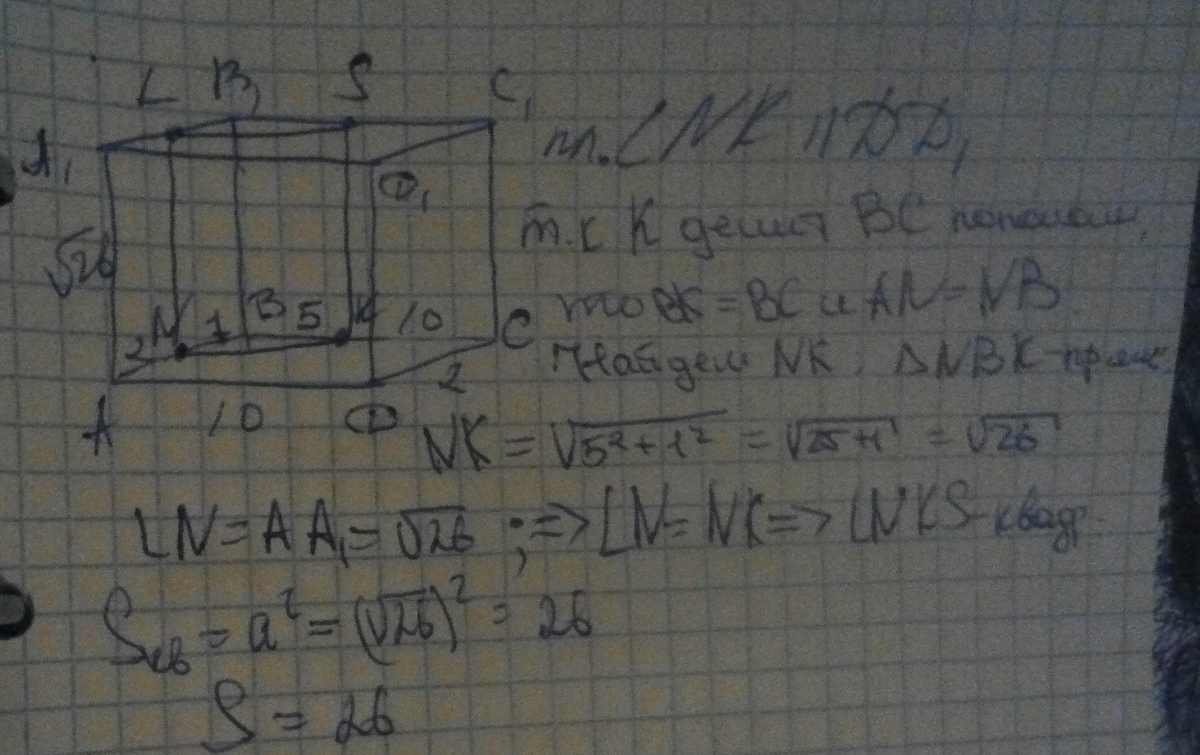 L B₁ S C₁
A₁ D₁
√26
N 1 B 5 K 10 C
2 2
A 10 D
пл. LNK || DD₁
т.к K делит BC пополам,
то BK = BC и AN = NB
Найдем NK. △NBK - прям
NK = √5²+1² = √25+1 = √26
LN = AA₁ = √26 ; => LN = NK => LNKS - квадр.
Sкв = a² = (√26)² = 26
S = 26